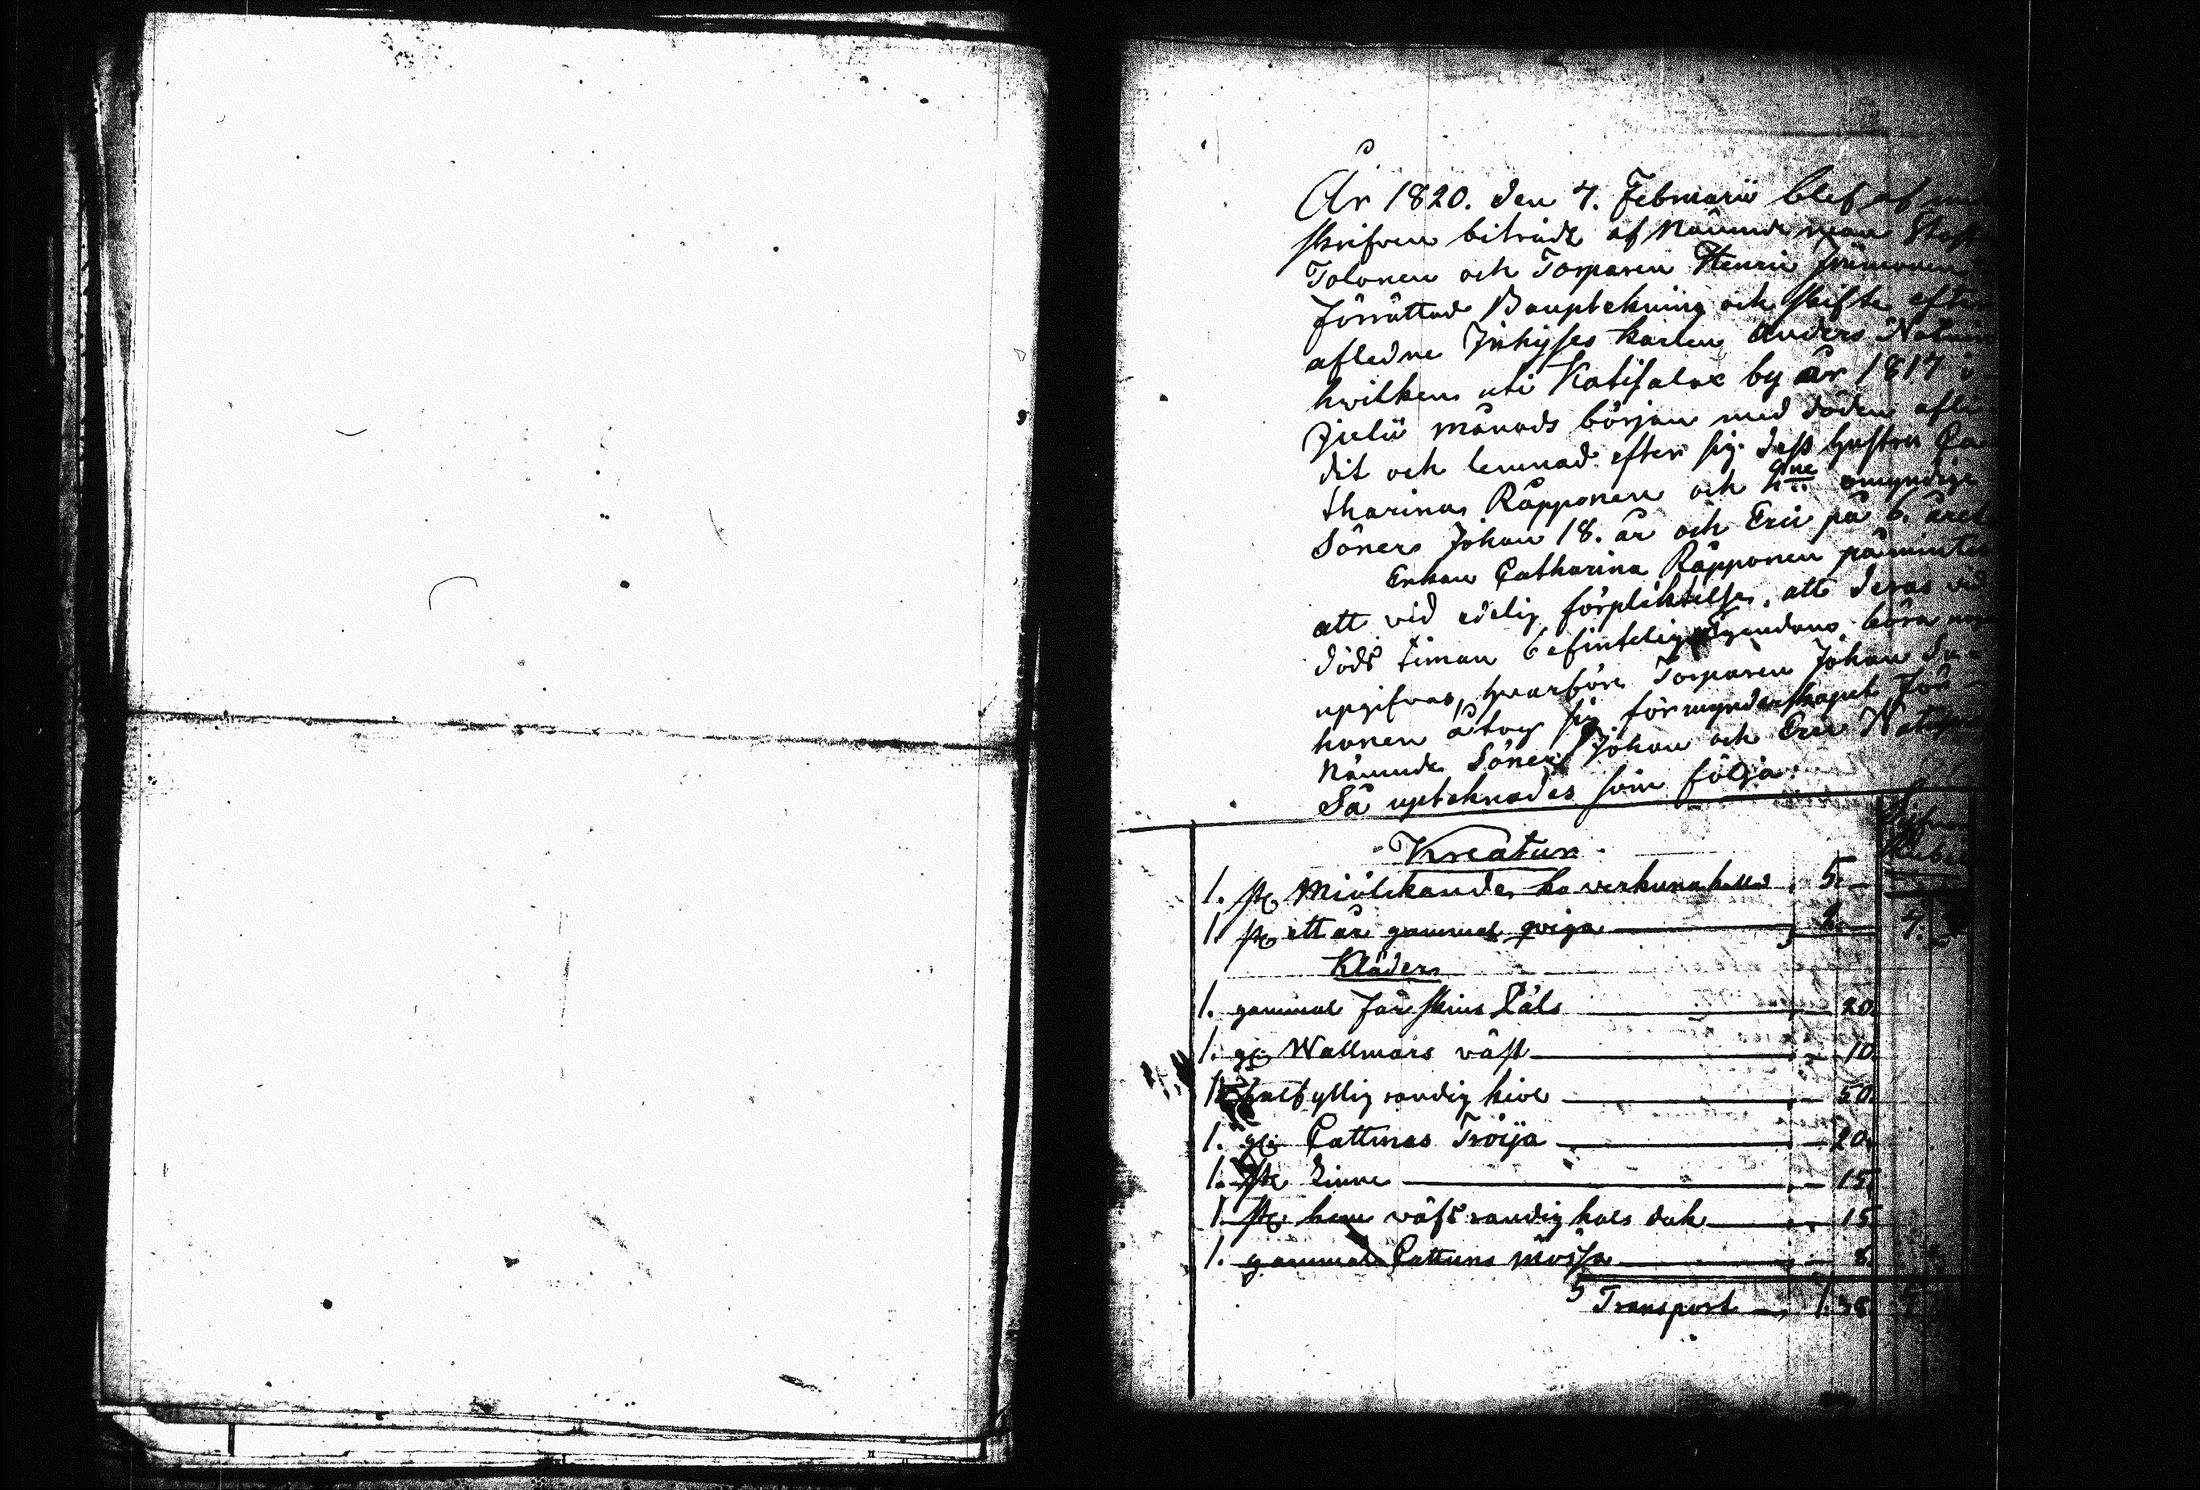 År 1820. den 7. Februarii blef af
skrifven biträdt af Nämnde man
Tolonen och Torparen Henric
förrättad Bouptekning och skifte efter
afledne Inhyses karlen Anders
hvilken uti Katisalax by år 1817 i
Julii månads början med döden afli
dit och lemnad efter sig dess hustru Ca
tharina Räpponen och 2ne omyndige
Söner Johan 18. år och Eric på 6. året
Enkan Catharina Räpponen påmintes
att vid edelig förpliktelse, att deras vid
döds timan befintelig Egendom böra
upgifvas, hvarföre Torparen Johan Su-
honen åtog sig förmynderskapet för
Nämnde Söner Johan och Eric
Så uptecknades som följa:
Kreatur
1. st Miölckande ko 5. —
1. st ett år gammal qviga 2. — 7.
Kläder
1. gammal fårskins Päls 20.
1. gl Wallmars väst 10.
1. halfyllig randig kiol 50.
1. gl Cattuns Tröija 20.
1. st 15.
1. st hem väfd randig hals duk 15.
1. gammal Cattuns mössa 8.
Transport 1. 38.